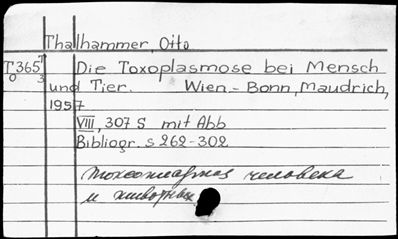 Thalhammer, Otto
T 365 7/3 Die Toxoplasmose bei Mensch
0 und Tier. Wien.- Bonn, Maudrich,
1957
VIII, 307 S mit Abb
Bibliogr. s 262-302
токсоплазмоз человека
и животных